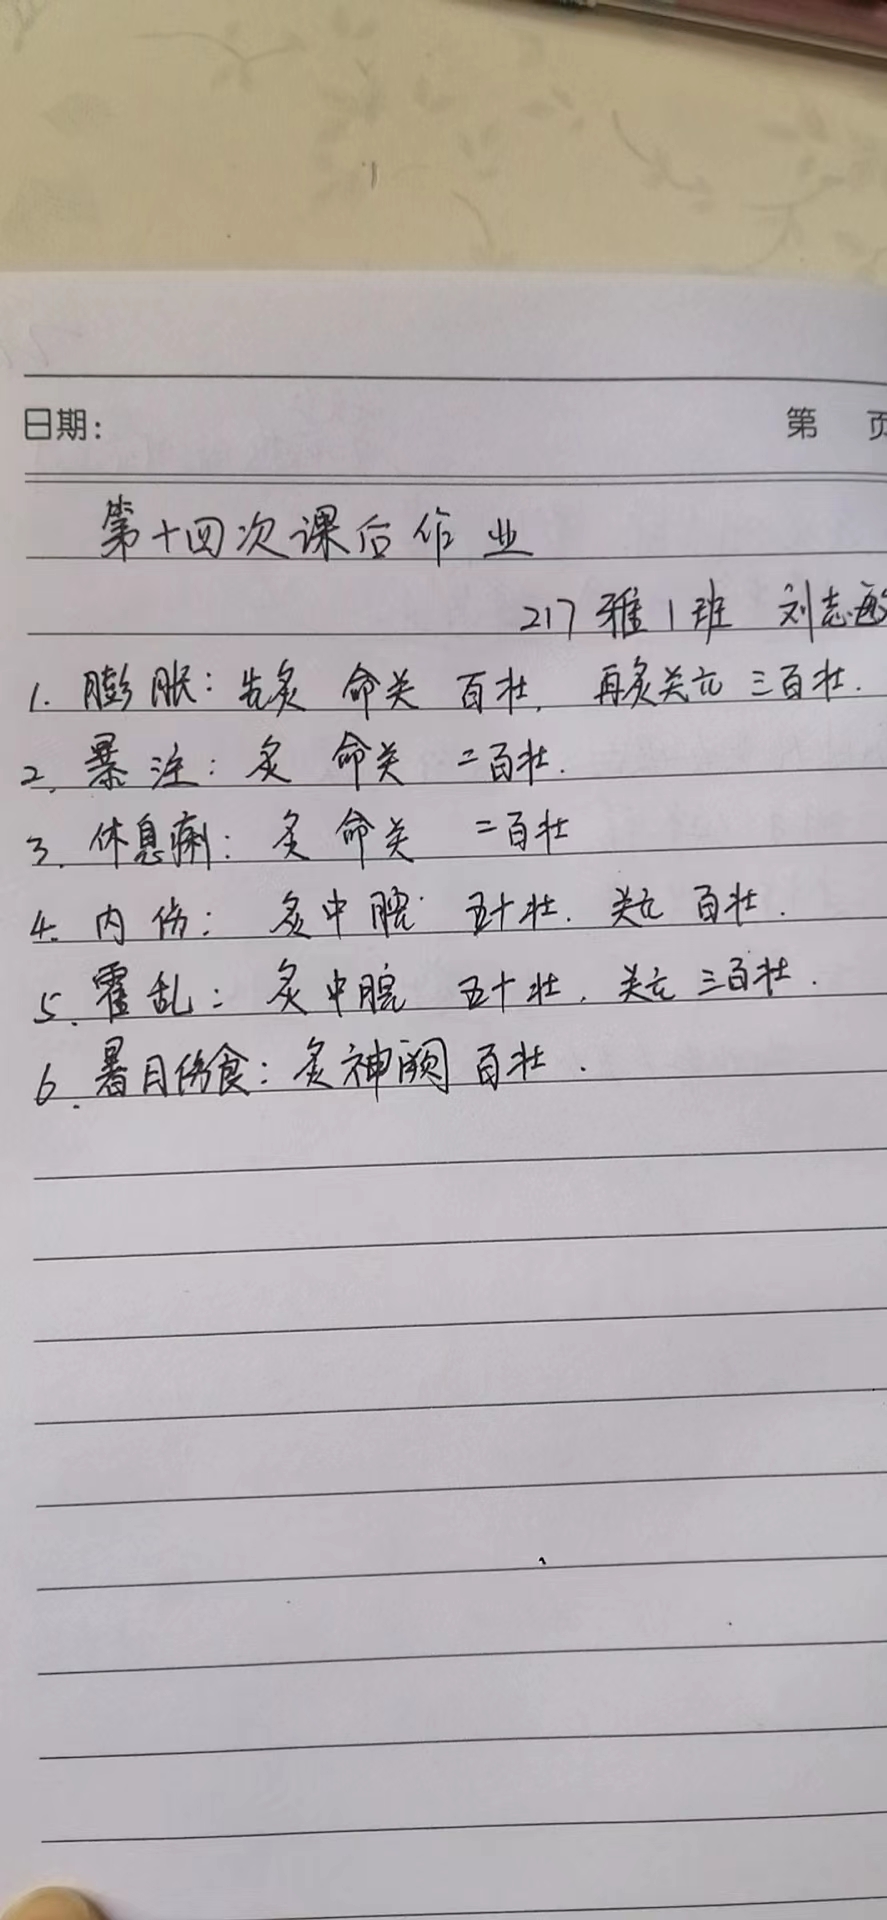 日期: 第 页
第十四次课后作业
217雅1班 刘志敏
1. 膨胀: 先炙 命关 百壮, 再炙关元 三百壮.
2. 暴注: 炙 命关 二百壮.
3. 休息痢: 炙 命关 二百壮
4. 内伤: 炙中脘 五十壮. 关元 百壮.
5. 霍乱: 炙中脘 五十壮. 关元 三百壮.
6. 暑月伤食: 炙神阙 百壮.